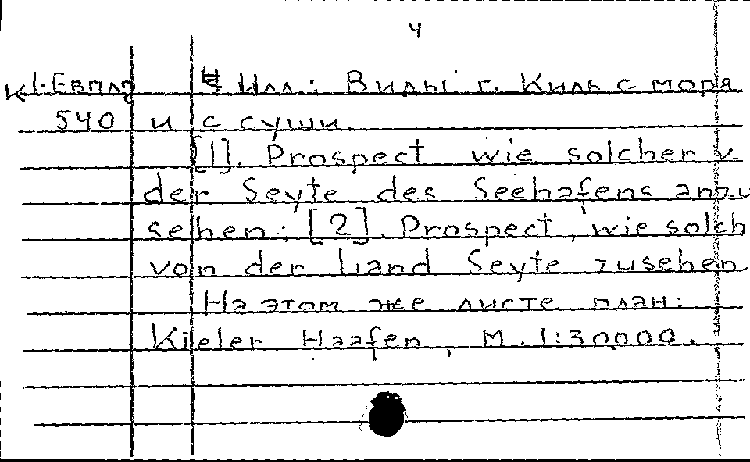 4
К1-Евпл 4 Илл.: Виды г. Киль с моря
540 и с суши.
[1]. Prospect wie solcher v.
der Seyte des Seehafens anzu
sehen; [2]. Prospect, wie solch
von der Land Seyte zusehen
На этом же листе план:
Kieler Haafen, М. 1:30000.